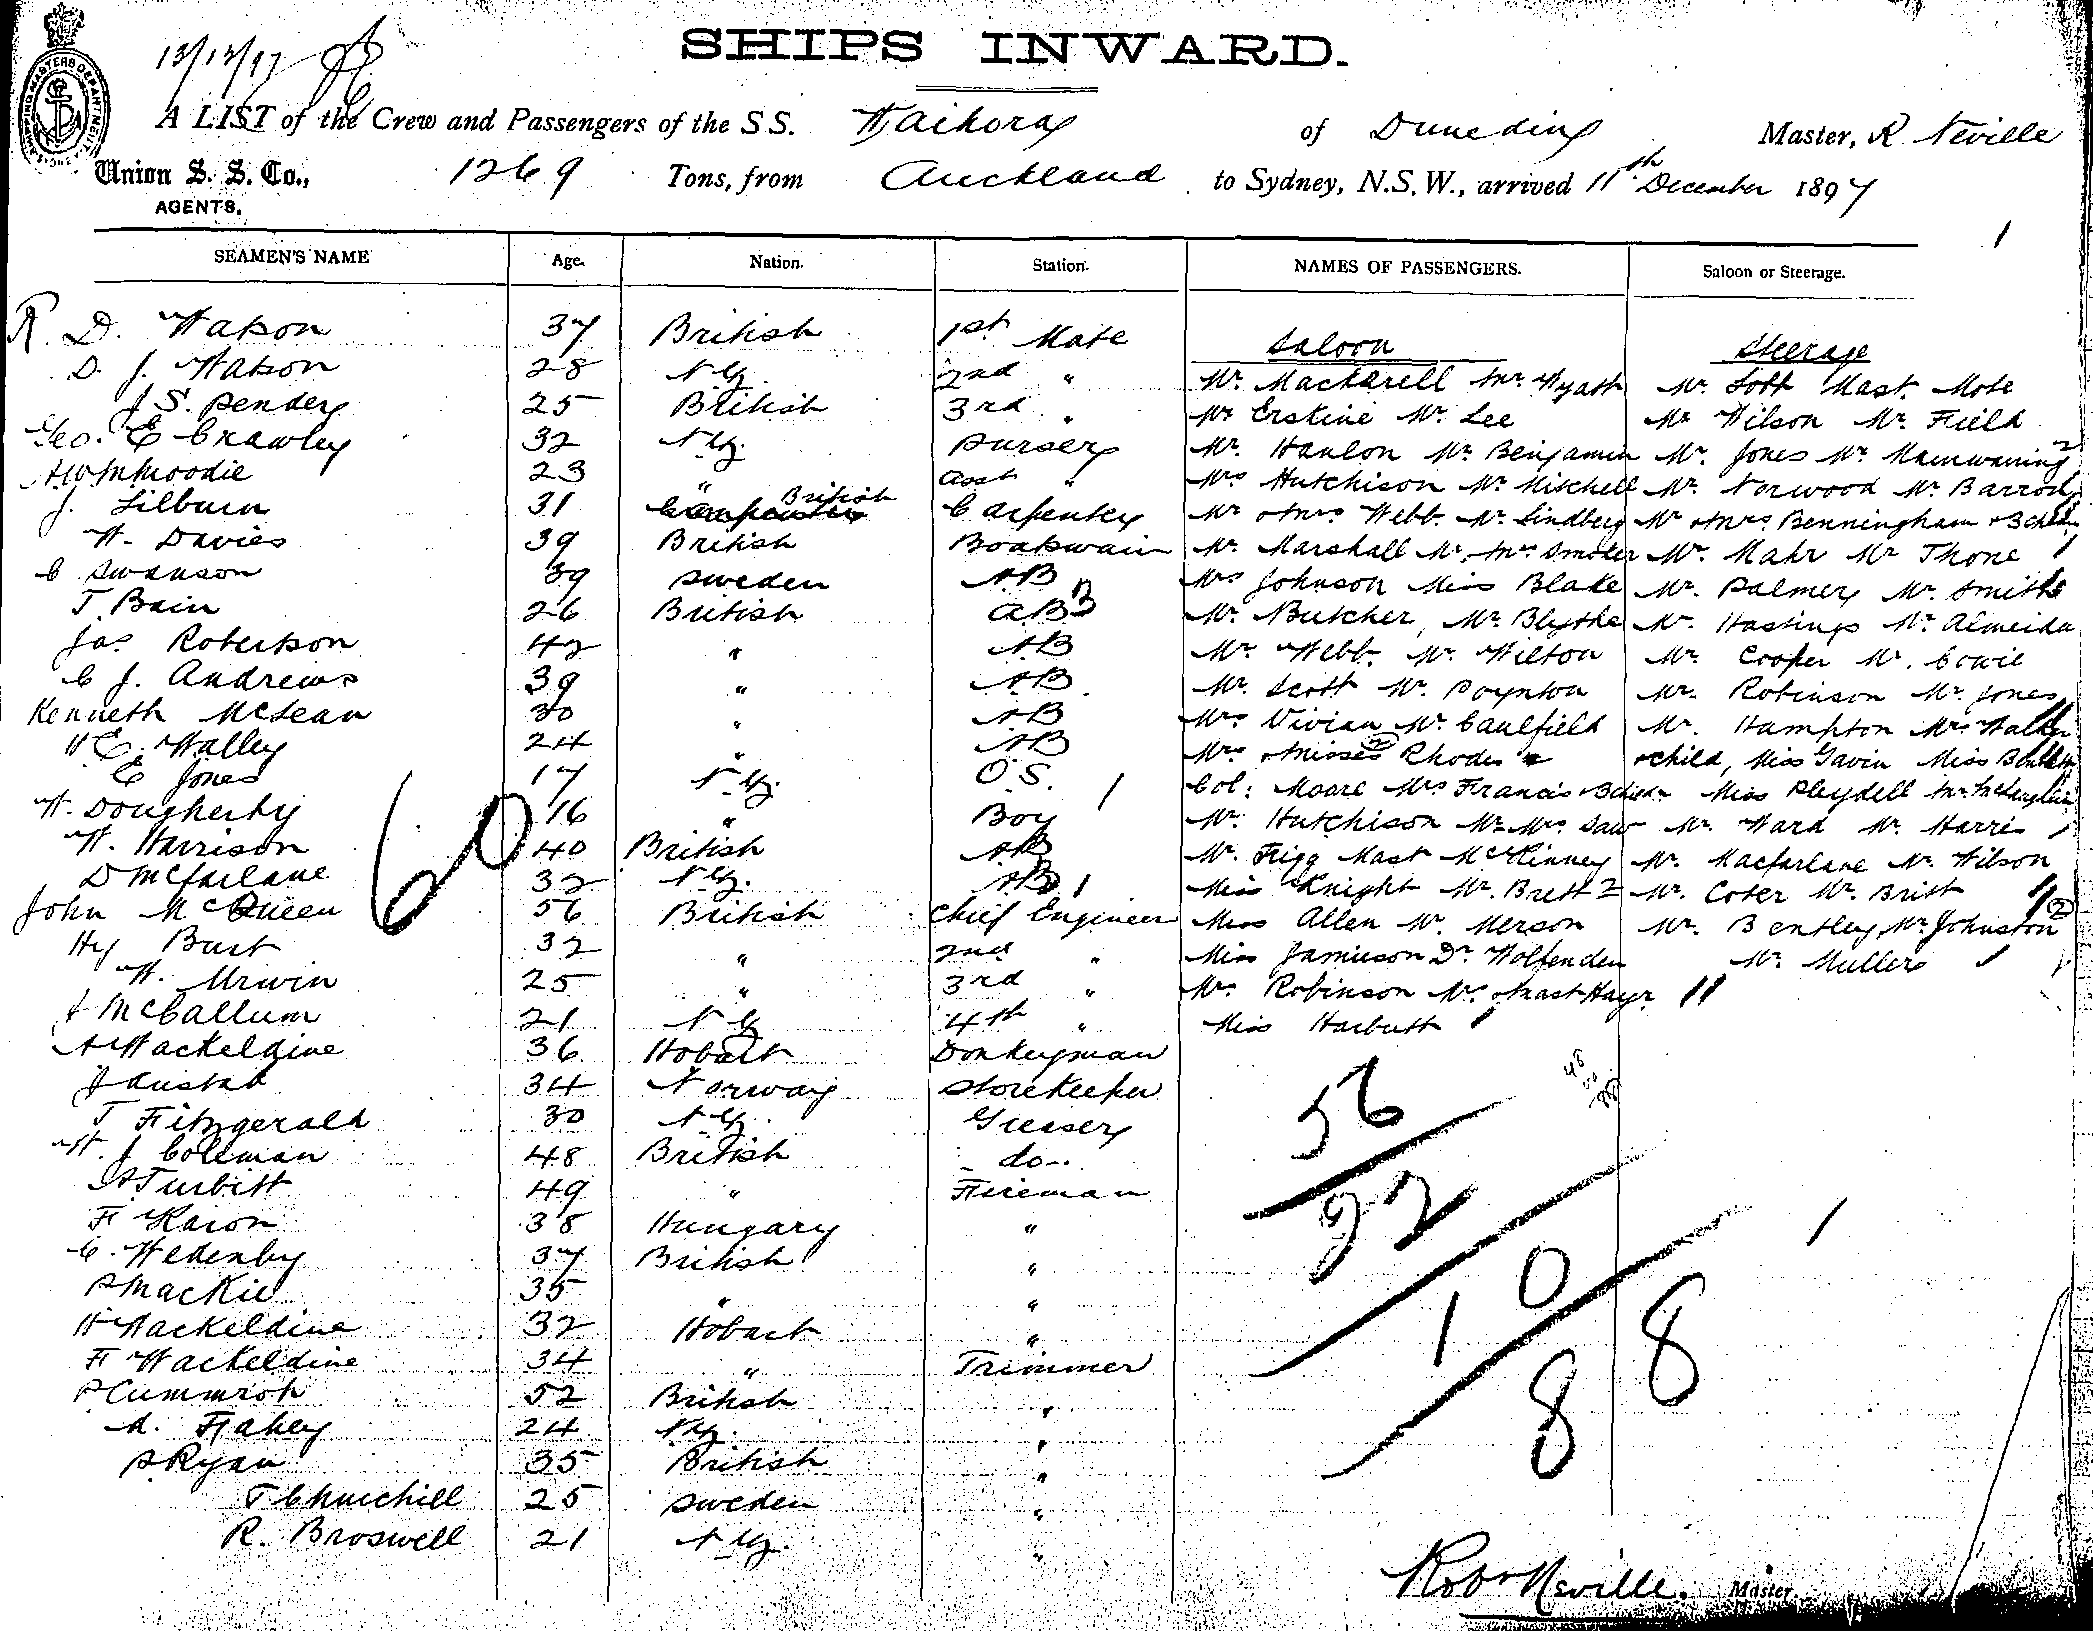 SHIPS INWARD.
13/12/97
A LIST of the Crew and Passengers of the S S. Waihora of Dunedin Master, R Neville
Union S. S. Co., 1269 Tons, from Auckland to Sydney, N.S.W., arrived 11th December 1897
AGENTS.
1
SEAMEN'S NAME Age. Nation. Station. NAMES OF PASSENGERS. Saloon or Steerage.
R. D. Watson 37 British 1st Mate Saloon Steerage
D. J. Watson 28 N.Z. 2nd " Mr. Mackarell Mr. Wyatt Mr. Lott Mast. Mote
J S. Pender 25 British 3rd " Mr Erskine Mr. Lee Mr Wilson Mr. Field
Geo. E Crawley 32 N.Z. Purser Mr. Hanlon Mr. Benjamin Mr. Jones Mr. Mainwaring 2
23 " Asst " Mrs Hutchison Mr. Mitchell Mr. Norwood Mr. Barrod
J. Lilburn 31 Carpenter British Carpenter Mr & Mrs Webb. Mr. Lindberg Mr & Mrs. Benningham & 3 Chldn
W. Davies 39 British Boatswain Mr. Marshall Mr. & Mrs Smoker Mr. Mahr Mr Thone
C Swanson 39 Sweden AB Mrs Johnson Miss Blake Mr. Palmer Mr. Smith
T. Bain 26 British A.B 3 Mr. Butcher, Mr. Blythe Mr. Hastings Mr. Almeida
Jas Robertson 42 " AB Mr. Webb. Mr. Wilton Mr. Cooper Mr. Cowie
C J. Andrews 39 " AB. Mr. Scott Mr. Poynton Mr. Robinson Mr. Jones
Kenneth McLean 30 " AB Mrs Vivian Mr. Caulfield Mr. Hampton Mrs Walker
H E. Walley 24 " AB Mrs & Misses (2) Rhodes & child, Miss Gavin Miss
E Jones 17 N.Z. O.S. 1 Col: Moore Mrs Francis & 3 Chldn Miss Pleydell
W. Dougherty 16 " Boy Mr. Hutchison Mr. Mrs. Daw Mr. Ward Mr. Harris
W. Harrison 40 British AB Mr. Frigg Mast McKinney Mr. Macfarlane Mr. Wilson
D McFarlane 32 N.Z. AB 1 Miss Knight Mr. Brett 2 Mr. Coter Mr. Britt
John McQueen 56 British Chief Engineer Miss Allen Mr. Merson Mr. Bentley, Mr. Johnston (2)
Hy Burt 32 " 2nd " Miss Jamieson Dr. Wolfenden Mr. Muller
W. Urwin 25 " 3rd " Mr. Robinson Mr. & Mast Hayr
J McCallum 21 N.Z. 4th " Miss Harbutt
A Wackeldine 36 Hobart Donkeyman
J Gustab 34 Norway Storekeeper
T Fitzgerald 30 N.Z. Greaser
W. J Coleman 48 British do
A Turbitt 49 " Fireman
F Karon 38 Hungary "
C. Wedenby 37 British "
P Mackie 35 " "
H Wackeldine 32 Hobart "
F Wackeldine 34 " Trimmer
P Cummrot 52 British "
M. Fahey 24 N.Z. "
P Ryan 35 British "
T Churchill 25 Sweden "
R. Broswell 21 N.Z. "
60
56
32
10
8 8
Robt Neville. Master